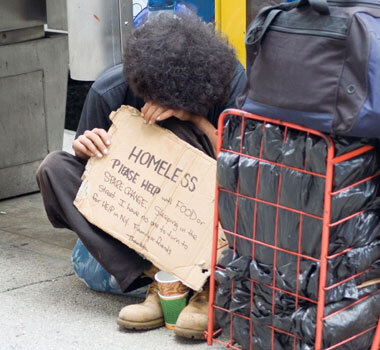 HOMELESS
PLEASE HELP with FOOD or
SPARE CHANGE! Sleeping in the
street. I have no one to turn to
for HELP in NY. Family or friends
Thank